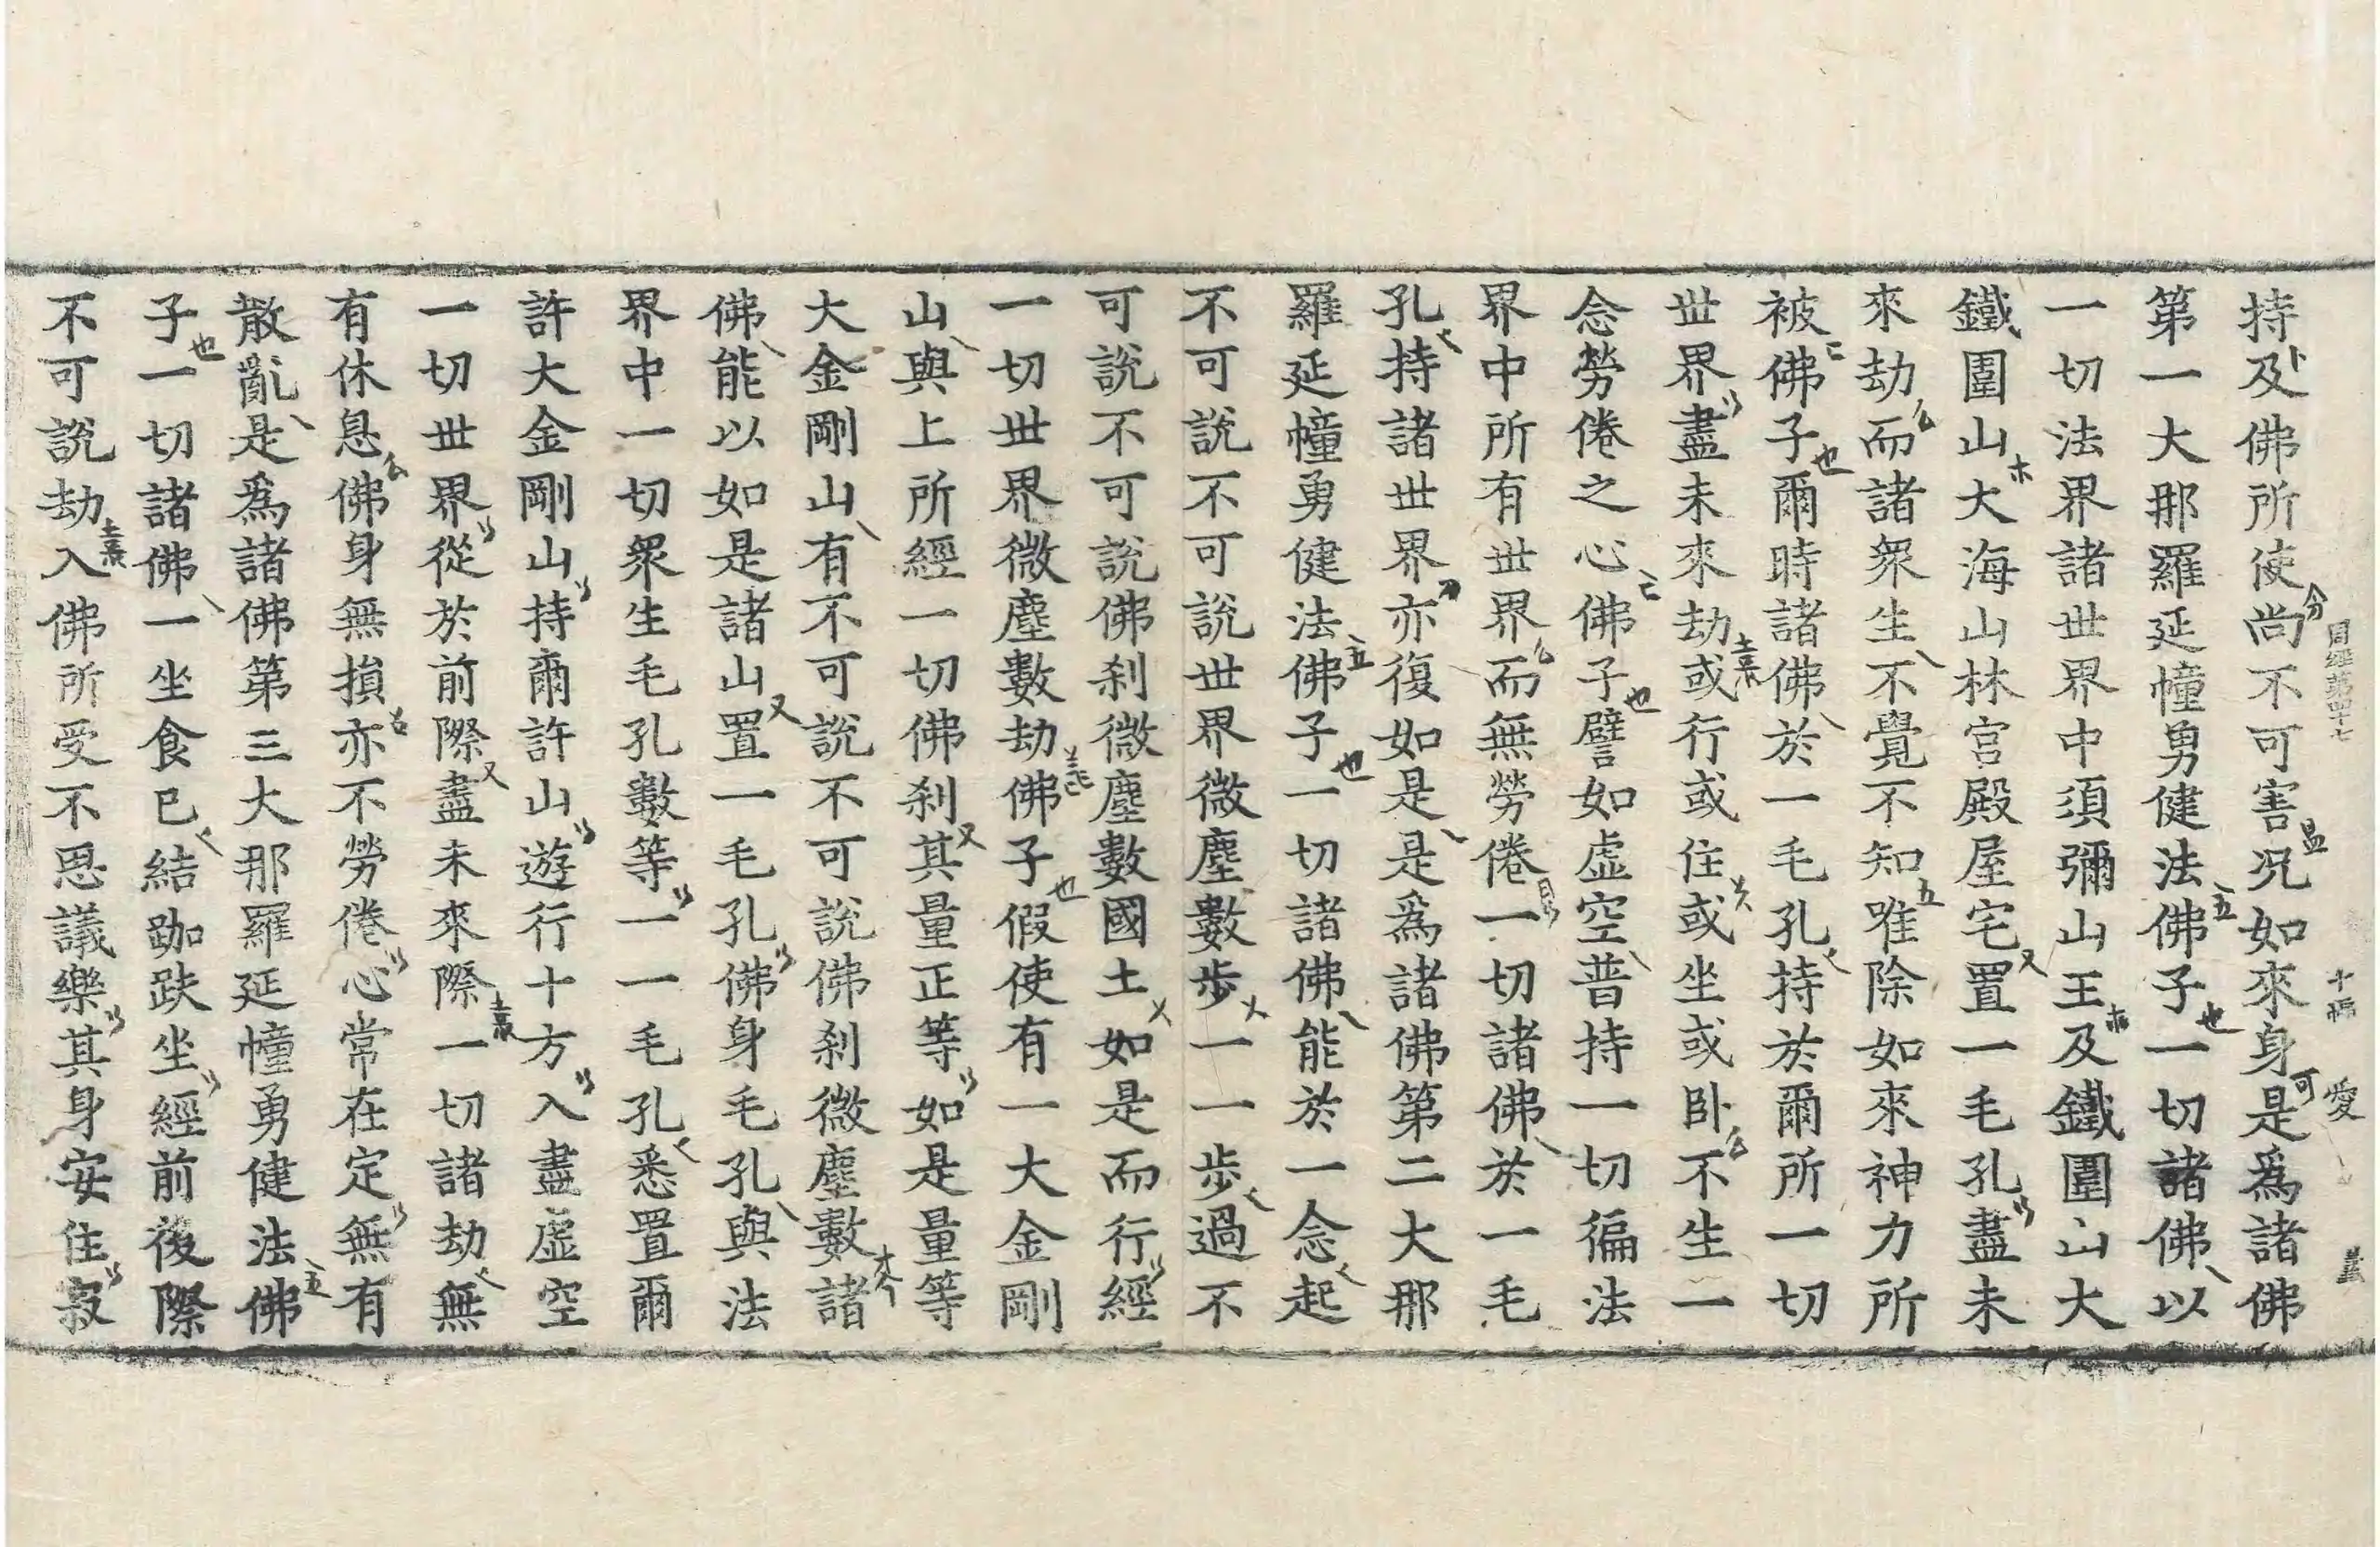 持及佛所使尚不可害況如來身是爲諸佛
第一大那羅延幢勇健法佛子一切諸佛以
一切法界諸世界中須彌山王及鐵圍山大
鐵圍山大海山林宮殿屋宅置一毛孔盡未
來劫而諸衆生不覺不知唯除如來神力所
被佛子爾時諸佛於一毛孔持於爾所一切
世界盡未來劫或行或住或坐或臥不生一
念勞倦之心佛子譬如虛空普持一切徧法
界中所有世界而無勞倦一切諸佛於一毛
孔持諸世界亦復如是是爲諸佛第二大那
羅延幢勇健法佛子一切諸佛能於一念起
不可說不可說世界微塵數步一一步過不
可說不可說佛刹微塵數國土如是而行經
一切世界微塵數劫佛子假使有一大金剛
山與上所經一切佛刹其量正等如是量等
大金剛山有不可說不可說佛刹微塵數諸
佛能以如是諸山置一毛孔佛身毛孔與法
界中一切衆生毛孔數等一一毛孔悉置爾
許大金剛山持爾許山遊行十方入盡虛空
一切世界從於前際盡未來際一切諸劫無
有休息佛身無損亦不勞倦心常在定無有
散亂是爲諸佛第三大那羅延幢勇健法佛
子一切諸佛一坐食已結跏趺坐經前後際
不可說劫入佛所受不思議樂其身安住寂